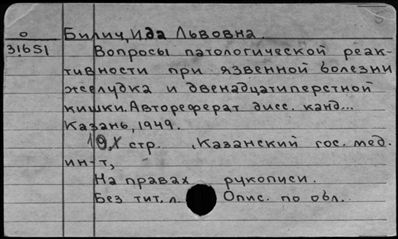 о Билич, Ида Львовна.
31651 Вопросы патологической реак-
тивности при язвенной болезни
желудка и двенадцатиперстной
кишки. Автореферат дисс. канд...
Казань, 1949.
стр. Казанский гос. мед.
ин-т,
На правах рукописи.
Без тит. л. Опис. по обл.